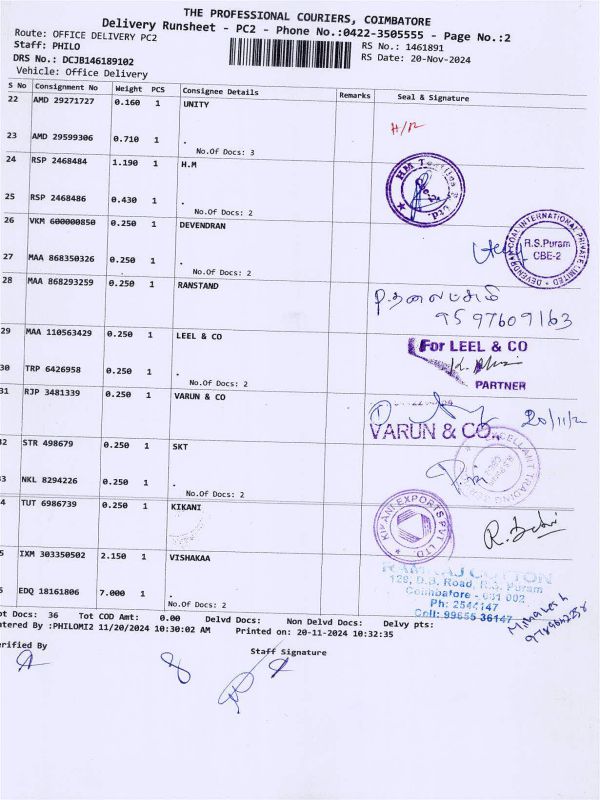 THE PROFESSIONAL COURIERS, COIMBATORE
Delivery Runsheet - PC2 - Phone No.:0422-3505555 - Page No.:2
Route: OFFICE DELIVERY PC2 RS No.: 1461891
Staff: PHILO RS Date: 20-Nov-2024
DRS No.: DCJB146189102
Vehicle: Office Delivery
S No Consignment No Weight PCS Consignee Details Remarks Seal & Signature
22 AMD 29271727 0.160 1 UNITY
H/R
23 AMD 29599306 0.710 1 .
No.Of Docs: 3
24 RSP 2468484 1.190 1 H.M
25 RSP 2468486 0.430 1 .
No.Of Docs: 2
26 VKM 600000850 0.250 1 DEVENDRAN
DEVENDRAN COAL INTERNATIONAL PRIVATE LIMITED
R.S.Puram
CBE-2
27 MAA 868350326 0.250 1 .
No.Of Docs: 2
28 MAA 868293259 0.250 1 RANSTAND
9597609163
29 MAA 110563429 0.250 1 LEEL & CO
For LEEL & CO
PARTNER
30 TRP 6426958 0.250 1 .
No.Of Docs: 2
31 RJP 3481339 0.250 1 VARUN & CO
20/11/2
VARUN & CO.
32 STR 498679 0.250 1 SKT
33 NKL 8294226 0.250 1 .
No.Of Docs: 2
4 TUT 6986739 0.250 1 KIKANI
KIKANI EXPORTS PVT LTD
5 IXM 303350502 2.150 1 VISHAKAA
RAMRAJ COTTON
128, D.B. Road, R.S. Puram
Coimbatore - 641 002
Ph: 2544147
Cell: 99655 36147
6 EDQ 18161806 7.000 1 .
No.Of Docs: 2
ot Docs: 36 Tot COD Amt: 0.00 Delvd Docs: Non Delvd Docs: Delvy pts:
ntered By :PHILOMI2 11/20/2024 10:30:02 AM Printed on: 20-11-2024 10:32:35
erified By Staff Signature